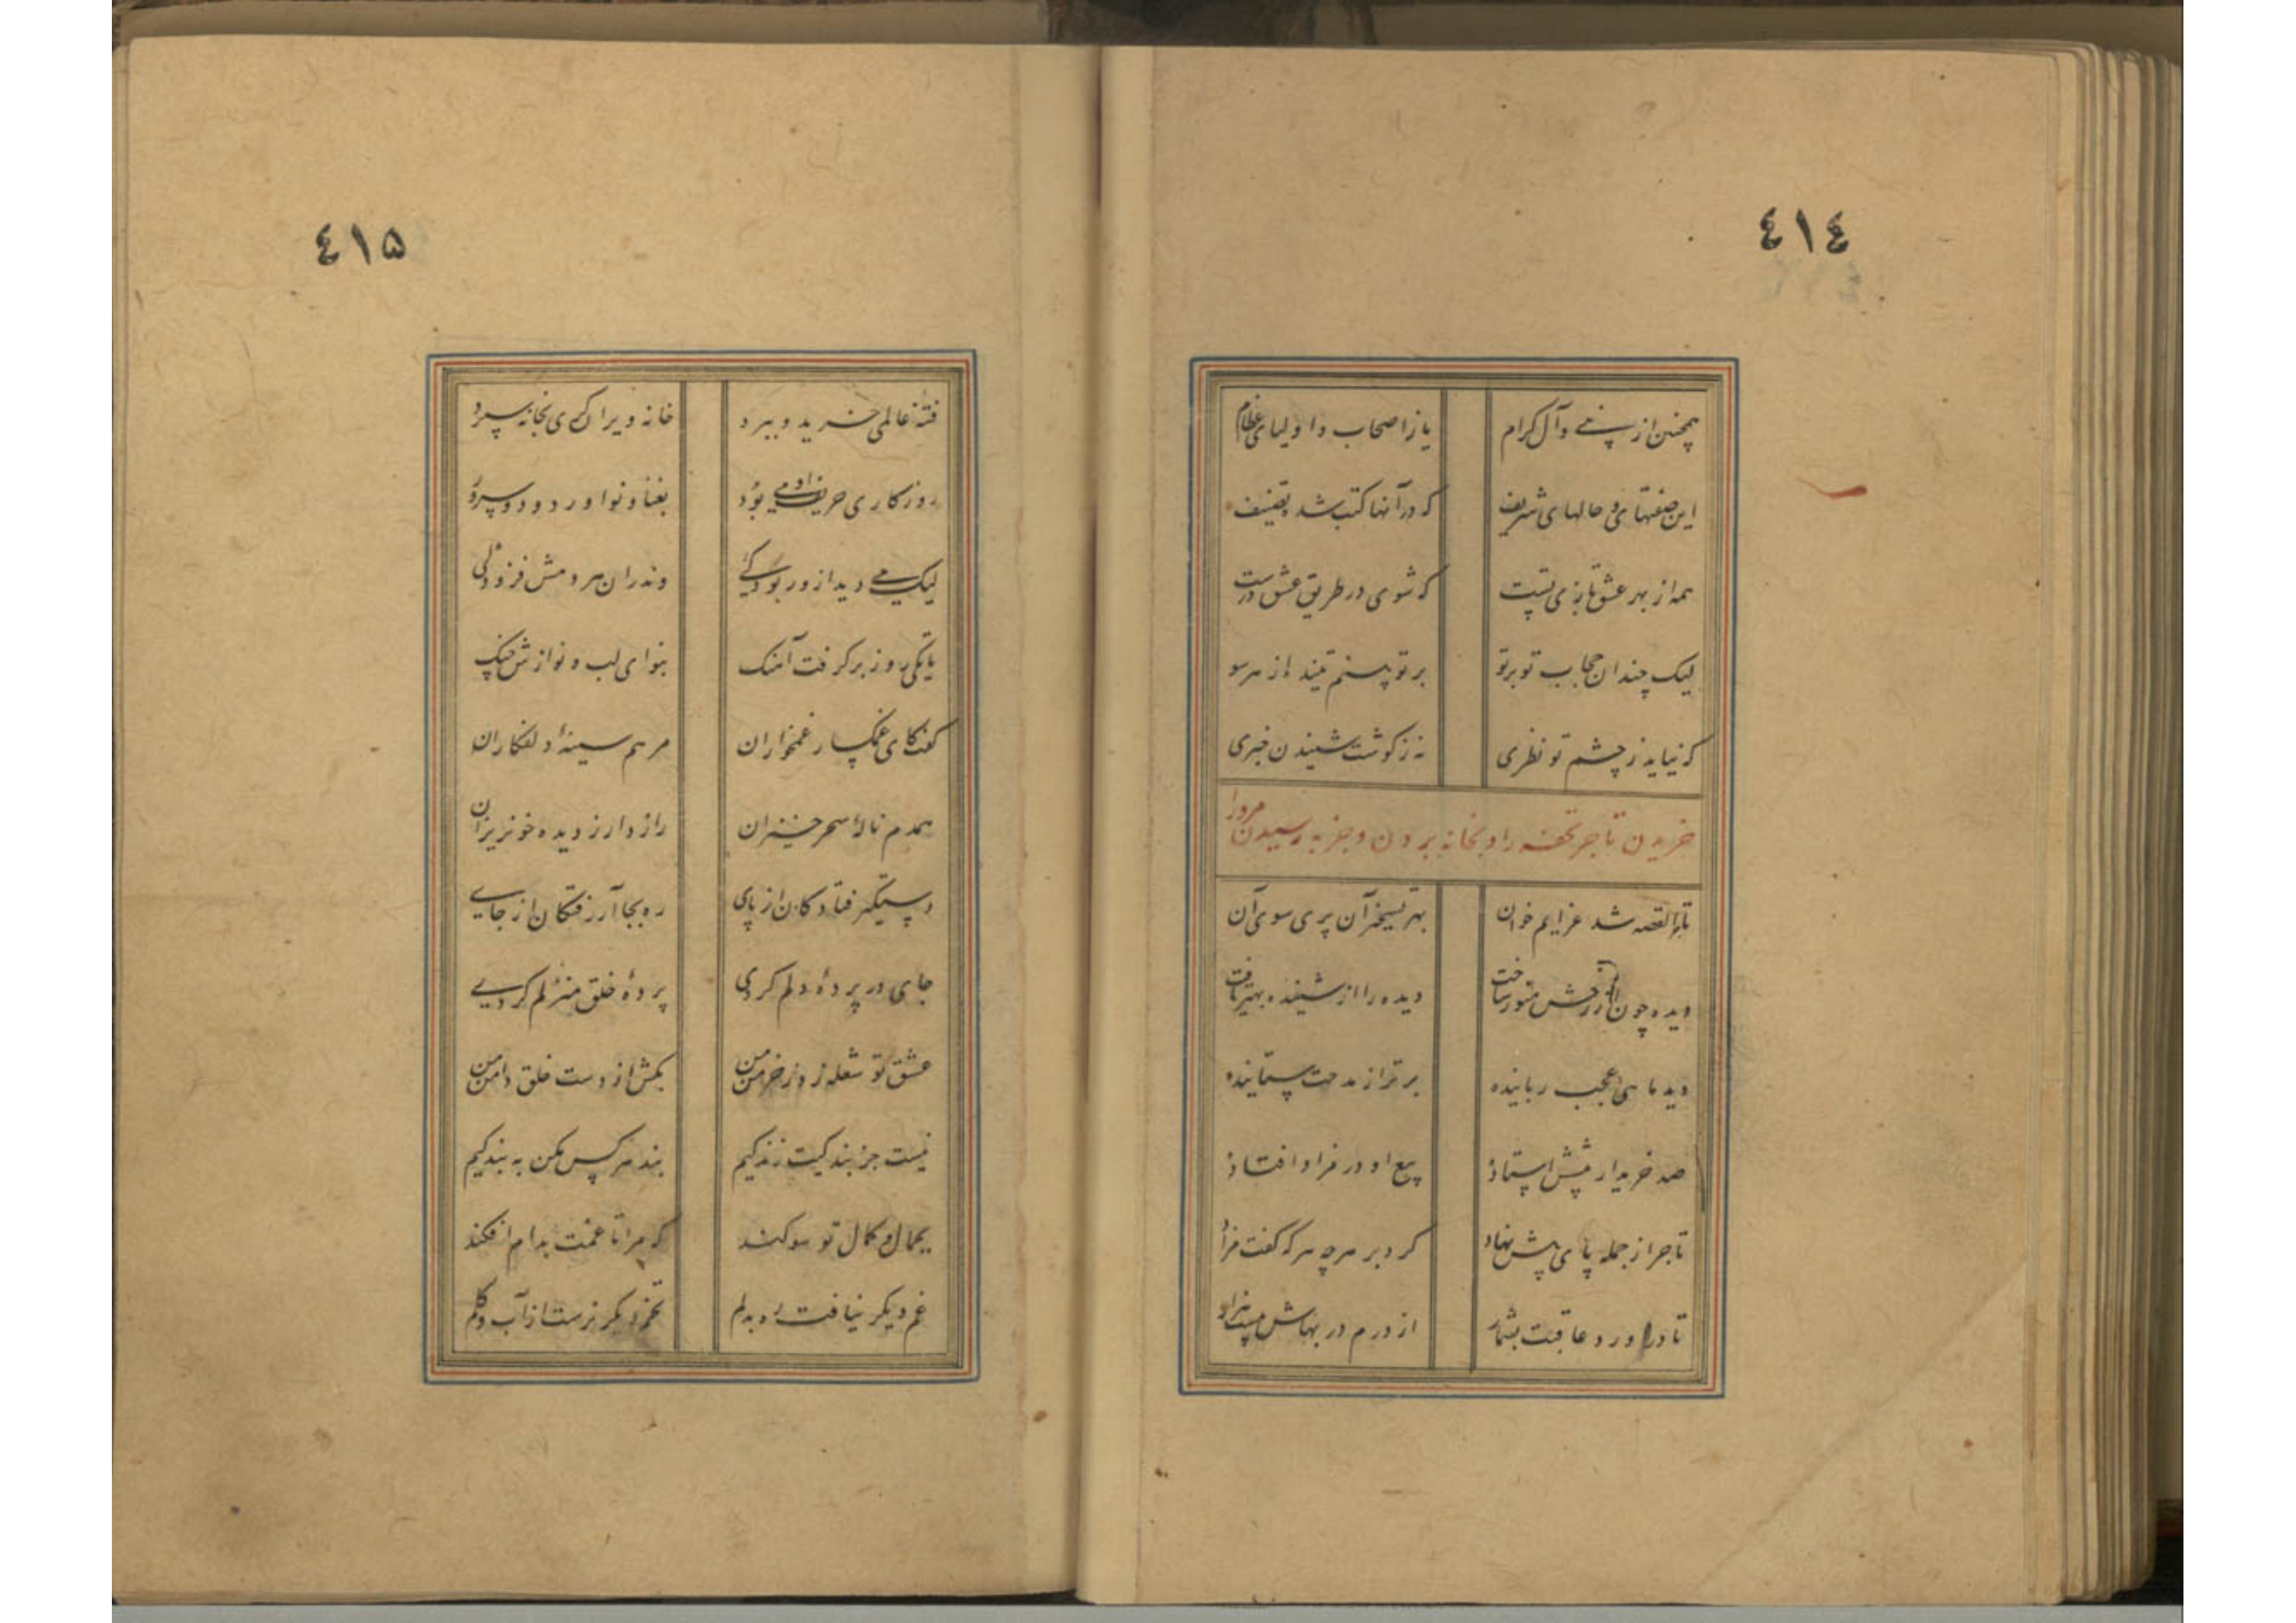 ٤١٤
همچنین از نبی و آل کرام یا ز اصحاب و اولیای عظام
این صفتهای و حالهای شریف که در آنها کتب شد تصنیف
همه از بهر عشقبازی تست که شوی در طریق عشق درست
لیک چندان حجاب تو بر تو بر تو بستم تنیده از هر سو
که نیاید ز چشم تو نظری نه ز گوشت شنیدن خبری
خریدن تاجر تحفه را و بخانه بردن و جذبه رسیدن مرورا
تاجر القصه شد عزایم خوان بهر تسخیر آن پری سوی آن
دیده چون از رخش منور ساخت دیده را از شنیده بهتر یافت
دید ماهی عجب رباینده برتر از مدحت ستاینده
صد خریدار پیشش استاده بیع او در مزاد افتاده
تاجر از جمله پای پیش نهاد کرد بر هر چه هر که گفت مزاد
تا درآورد عاقبت بشمار از درم در بهاش بیست هزار
٤١۵
فتنه عالمی خرید و ببرد خانه ویران کنی بخانه سپرد
روزکاری حریف او می بود بغنا و نوا و رود و سرود
لیک می دید از و ربودگئ وندران هر دمش فزودگی
تا یکی روز برگرفت آهنگ بنوای لب و نوازش چنگ
گفت کای غمگسار غمخواران مرهم سینهٔ دلفکاران
همدم نالهٔ سحرخیزان راز دار ز دیده خونریزان
دستگیر فتادکان از پای ره بجا آر رفتکان از جای
جای در پردهٔ دلم کردی پردهٔ خلق منزلم کردی
عشق تو شعله زد ز خرمن من بکش از دست خلق دامن من
نیست جز بندگیت زندگیم بند هر کس مکن به بندگیم
بجمال و کمال تو سوکند که مرا تا غمت بدام افکند
غم دیکر نیافت ره بدلم تخم دیکر نرست از آب و گلم